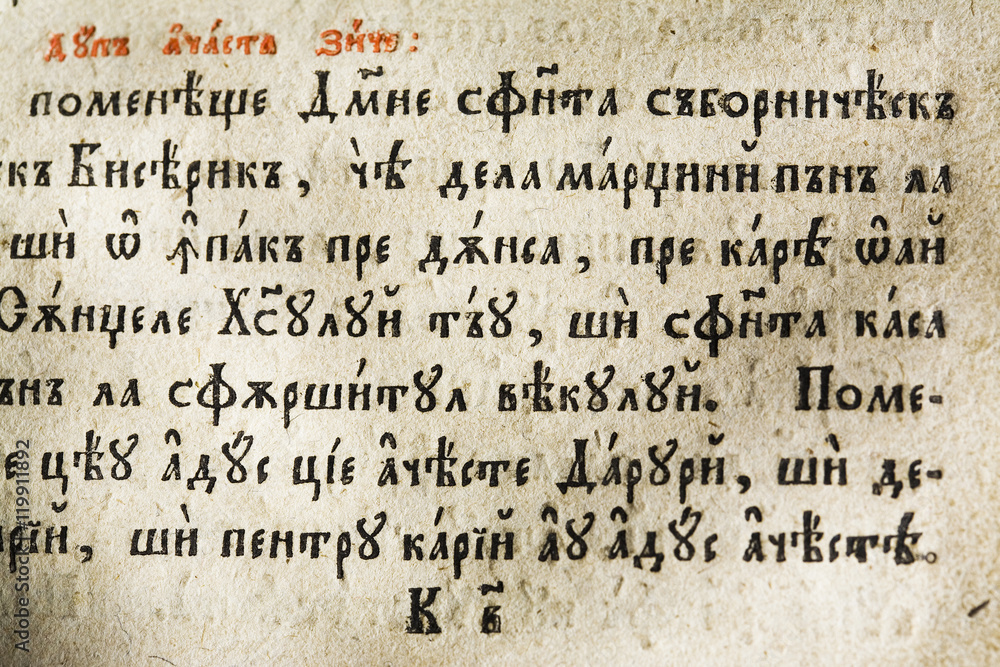 дꙋпъ а҆ча́ста зи́че:
поменѣ́ще Дм҃не сфн҃та съборничѣ́скъ
къ Бисѣ́рикъ, чѣ̀ дела ма́рџинй пънъ ла
шѝ ѡ҆ ꙟ҆па́къ пре дѫ́нса, пре ка́рѣ ѡ҆ай
Сѫ́нџеле Хс҃ꙋлꙋй тъ́ꙋ, шѝ сфн҃та ка́са
ънъ ла сфѫрши́тꙋл вѣ́кꙋлꙋй. Поме-
е цѣ́ꙋ а҆дꙋ́с цíе а҆чѣ́сте Да́рꙋрй, шѝ де-
рїй, шѝ пентрꙋ ка́рїй а҆ꙋ а҆дꙋ́с а҆чѣ́стѣ.
К в҃
Adobe Stock | #119911892